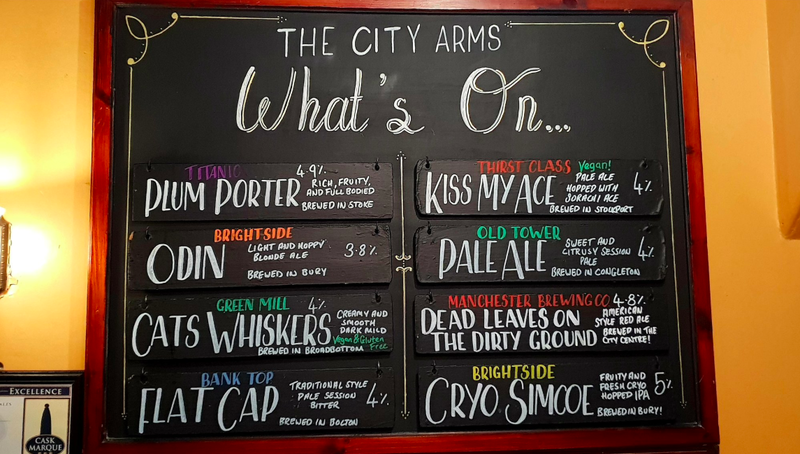 THE CITY ARMS
What's On...
TITANIC
4.9%
PLUM PORTER
RICH, FRUITY,
AND FULL BODIED
BREWED IN STOKE
BRIGHTSIDE
ODIN
LIGHT AND HOPPY
BLONDE ALE
3.8%
BREWED IN BURY
GREEN MILL
4%
CATS WHISKERS
CREAMY AND
SMOOTH
DARK MILD
Vegan & Gluten
Free
BREWED IN BROADBOTTOM
BANK TOP
FLAT CAP
TRADITIONAL STYLE
PALE SESSION
BITTER
4%
BREWED IN BOLTON
THIRST CLASS
Vegan!
KISS MY ACE
PALE ALE
HOPPED WITH
SORACHI ACE
4%
BREWED IN STOCKPORT
OLD TOWER
PALE ALE
SWEET AND
CITRUSY SESSION
PALE
4%
BREWED IN CONGLETON
MANCHESTER BREWING CO
4.8%
DEAD LEAVES ON
THE DIRTY GROUND
AMERICAN
STYLE RED ALE
BREWED IN THE
CITY CENTRE!
BRIGHTSIDE
CRYO SIMCOE
FRUITY AND
FRESH CRYO
HOPPED IPA
5%
BREWED IN BURY!
EXCELLENCE
CASK
MARQUE